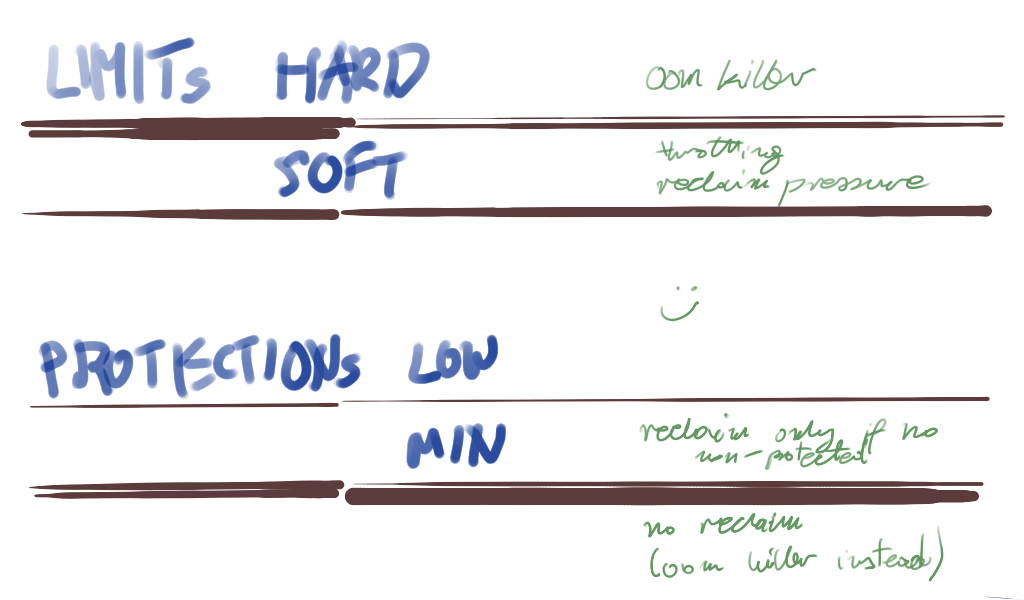 LIMITS HARD
oom killer
SOFT
throttling
reclaim pressure
PROTECTIONS LOW
MIN
reclaim only if no
non-protected
no reclaim
(oom killer instead)